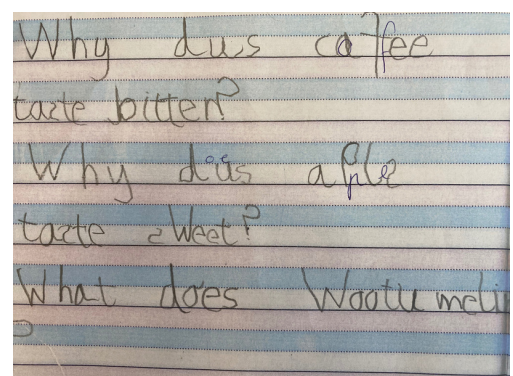 Why dus caffee
taste bitter?
Why dus aple
taste sweet?
What does
?